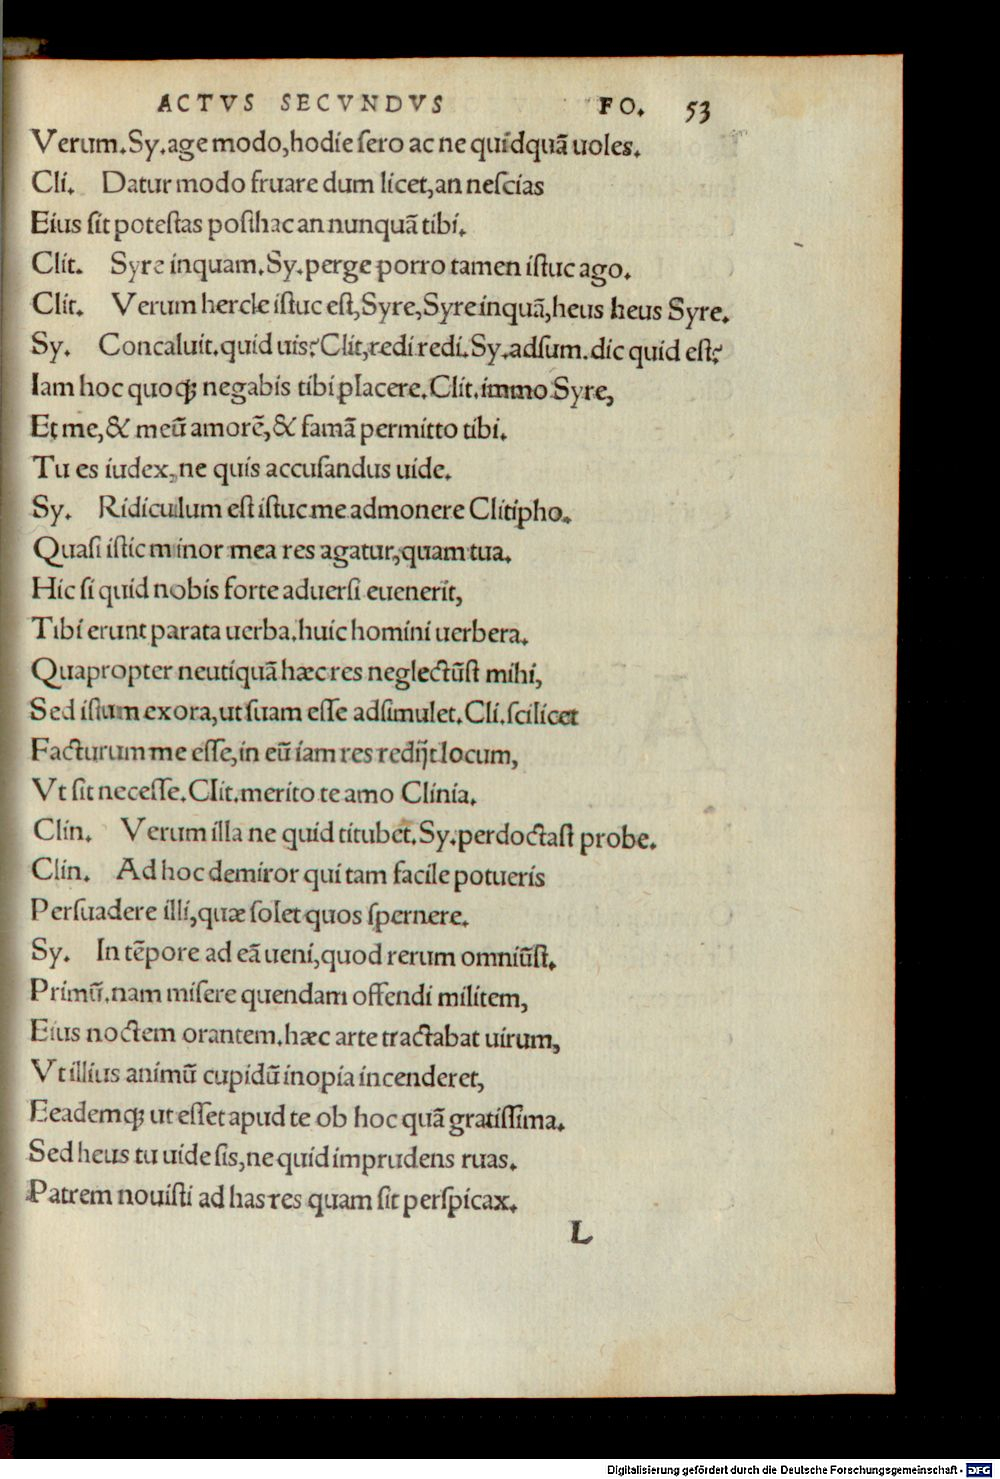 ACTVS SECVNDVS FO. 53
Verum.Sy.age modo,hodie ſero ac ne quidquã uoles.
Cli. Datur modo fruare dum licet,an neſcias
Eius ſit poteſtas poſthac an nunquã tibi.
Clit. Syre inquam.Sy.perge porro tamen iſtuc ago.
Clit. Verum hercle iſtuc eſt,Syre,Syre inquã,heus heus Syre.
Sy. Concaluit.quid uis?Clit,redi redi.Sy.adſum.dic quid eſt?
Iam hoc quoqȝ negabis tibi placere.Clit.immo Syre,
Et me,& meũ amorẽ,& famã permitto tibi.
Tu es iudex,ne quis accuſandus uide.
Sy. Ridiculum eſt iſtuc me admonere Clitipho.
Quaſi iſtic minor mea res agatur,quam tua.
Hic ſi quid nobis forte aduerſi euenerit,
Tibi erunt parata uerba.huic homini uerbera.
Quapropter neutiquã hæc res neglectũſt mihi,
Sed iſtum exora,ut ſuam eſſe adſimulet.Cli.ſcilicet
Facturum me eſſe,in eũ iam res redijt locum,
Vt ſit neceſſe.Clit.merito te amo Clinia.
Clin. Verum illa ne quid titubet.Sy.perdoctaſt probe.
Clin. Ad hoc demiror qui tam facile potueris
Perſuadere illi,quæ ſolet quos ſpernere.
Sy. In tẽpore ad eã ueni,quod rerum omniũſt.
Primũ.nam miſere quendam offendi militem,
Eius noctem orantem.hæc arte tractabat uirum,
Vt illius animũ cupidũ inopia incenderet,
Eeademqȝ ut eſſet apud te ob hoc quã gratiſſima.
Sed heus tu uide ſis,ne quid imprudens ruas.
Patrem nouiſti ad has res quam ſit perſpicax.
L
Digitalisierung gefördert durch die Deutsche Forschungsgemeinschaft - DFG